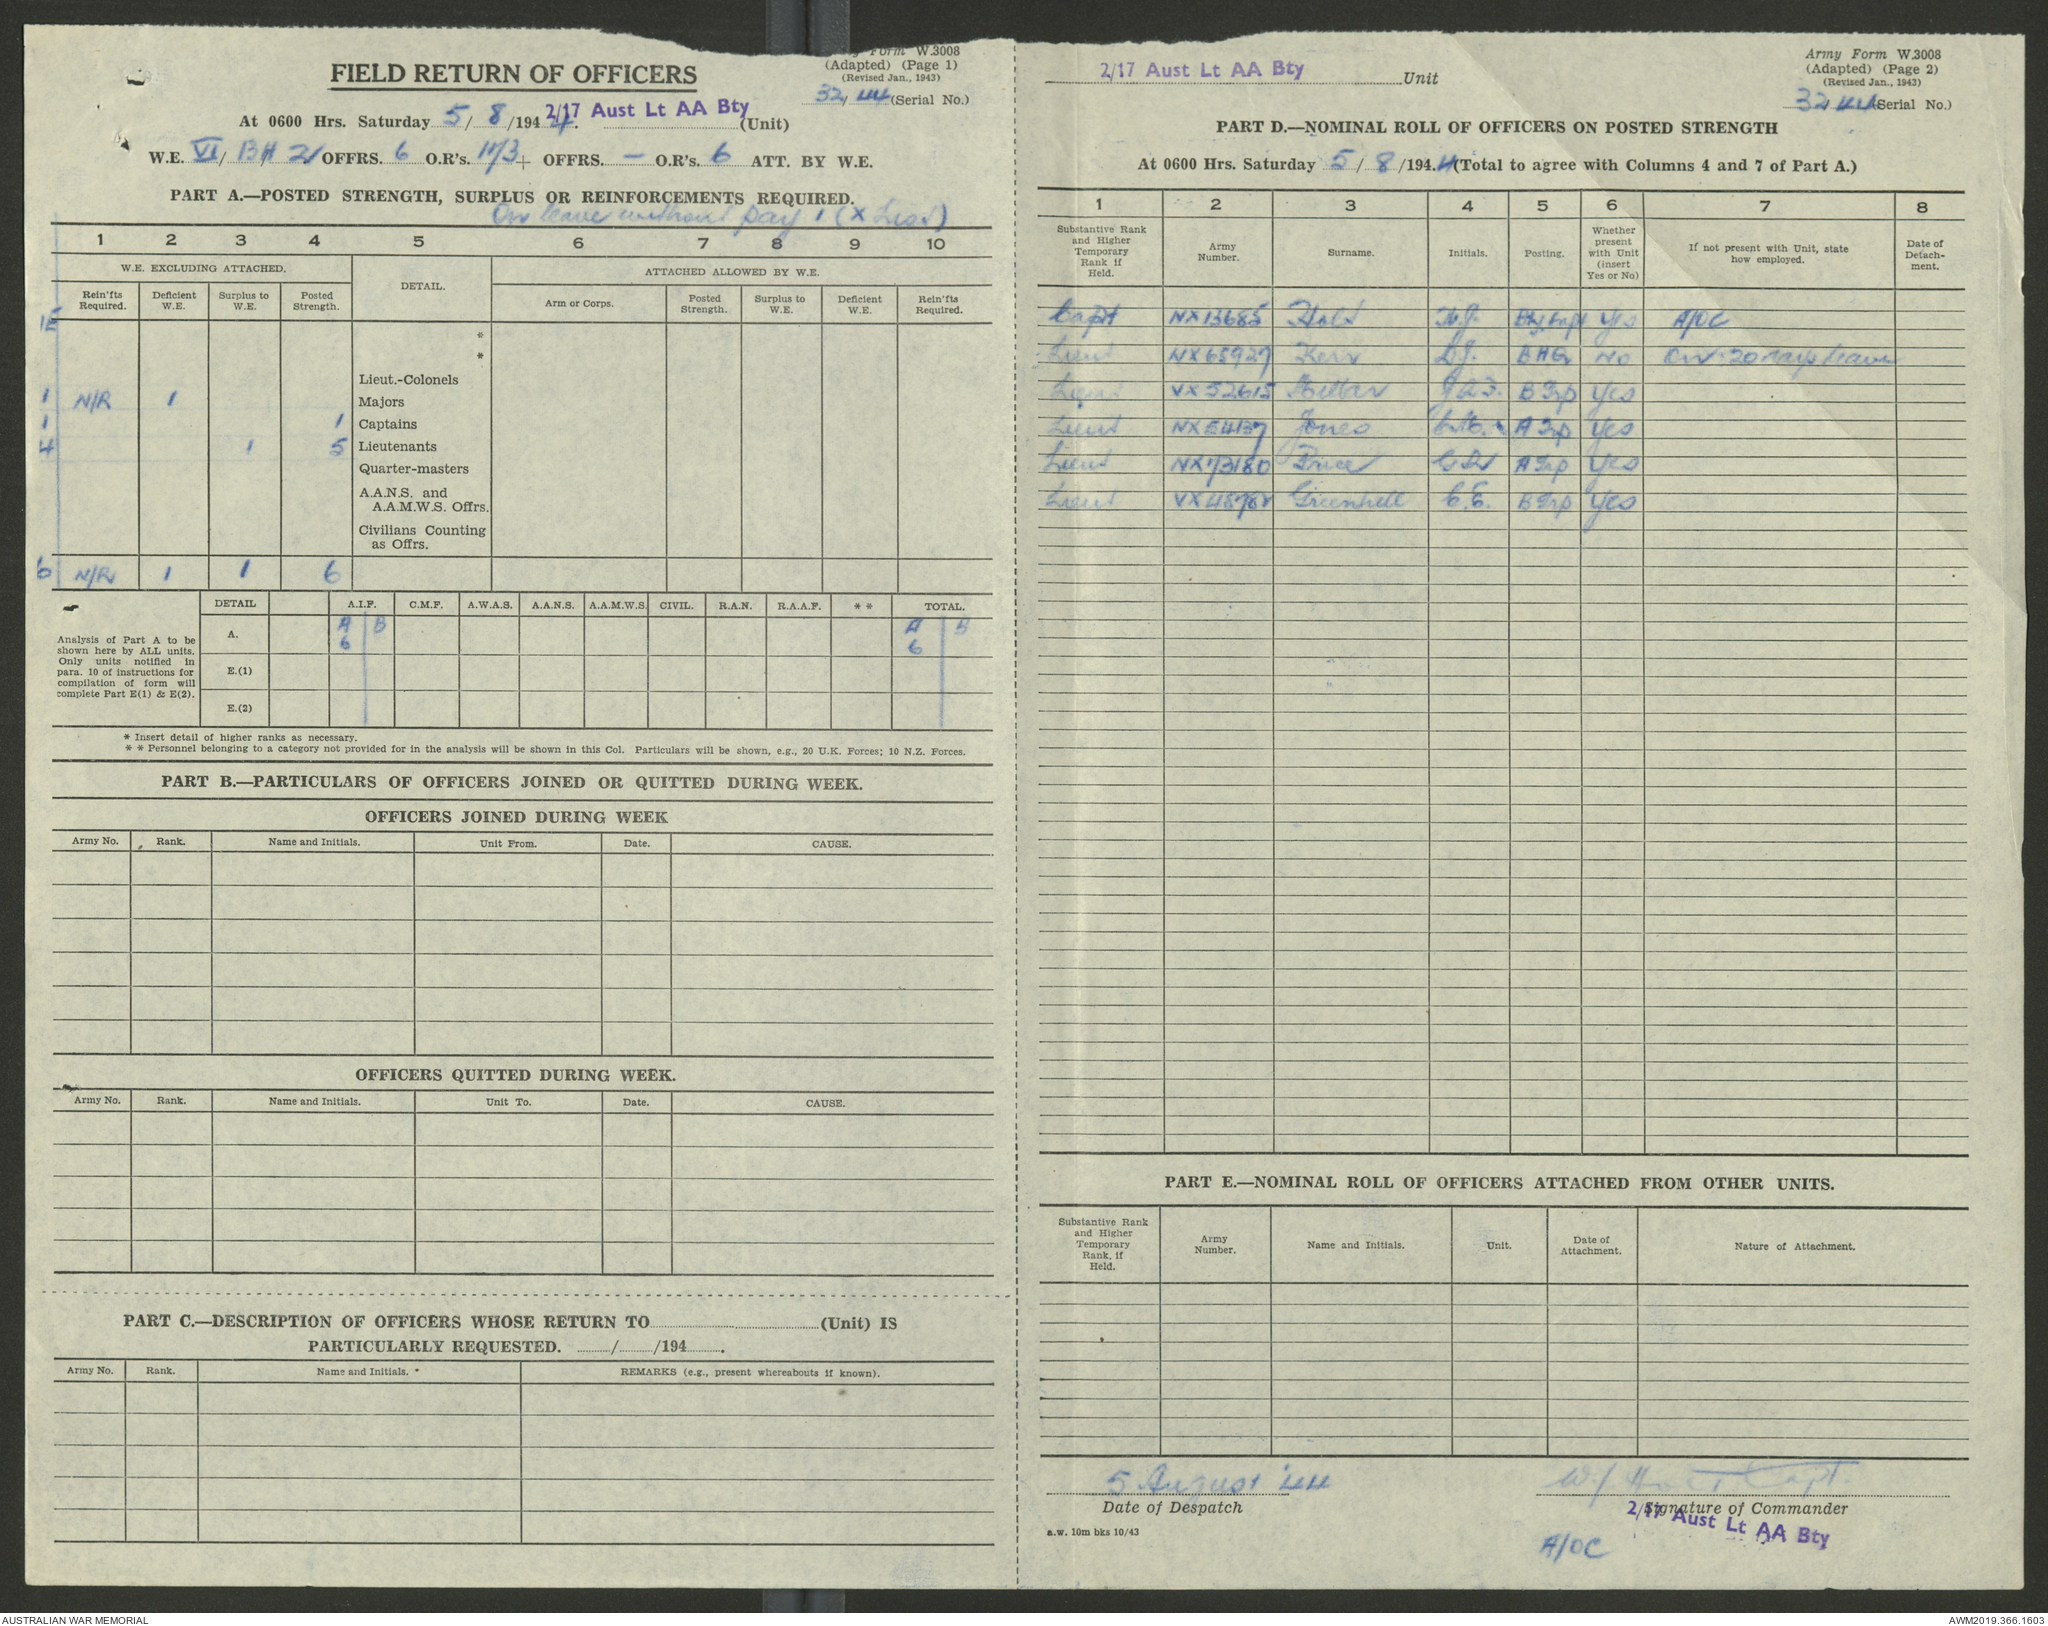 Army Form W.3008
(Adapted) (Page 1)
(Revised Jan., 1943)
FIELD RETURN OF OFFICERS
32/44 (Serial No.)
At 0600 Hrs. Saturday 5/8/1944. 2/17 Aust Lt AA Bty (Unit)
W.E. VI/ BH 2/ OFFRS. 6 O.R's. 113+ OFFRS. — O.R's. 6 ATT. BY W.E.
PART A.—POSTED STRENGTH, SURPLUS OR REINFORCEMENTS REQUIRED.
On leave without pay 1 (X List)
1 2 3 4 5 6 7 8 9 10
W.E. EXCLUDING ATTACHED. DETAIL. ATTACHED ALLOWED BY W.E.
Rein'fts Required. Deficient W.E. Surplus to W.E. Posted Strength. Arm or Corps. Posted Strength. Surplus to W.E. Deficient W.E. Rein'fts Required.
*
*
Lieut.-Colonels
1 N/R 1 Majors
1 1 Captains
4 1 5 Lieutenants
Quarter-masters
A.A.N.S. and
A.A.M.W.S. Offrs.
Civilians Counting
as Offrs.
6 N/R 1 1 6
DETAIL A.I.F. C.M.F. A.W.A.S. A.A.N.S. A.A.M.W.S. CIVIL. R.A.N. R.A.A.F. * * TOTAL.
Analysis of Part A to be
shown here by ALL units.
Only units notified in
para. 10 of instructions for
compilation of form will
complete Part E(1) & E(2).
A. A B A B
6 6
E.(1)
E.(2)
* Insert detail of higher ranks as necessary.
* * Personnel belonging to a category not provided for in the analysis will be shown in this Col. Particulars will be shown, e.g., 20 U.K. Forces; 10 N.Z. Forces.
PART B.—PARTICULARS OF OFFICERS JOINED OR QUITTED DURING WEEK.
OFFICERS JOINED DURING WEEK
Army No. Rank. Name and Initials. Unit From. Date. CAUSE.
OFFICERS QUITTED DURING WEEK.
Army No. Rank. Name and Initials. Unit To. Date. CAUSE.
PART C.—DESCRIPTION OF OFFICERS WHOSE RETURN TO (Unit) IS
PARTICULARLY REQUESTED. / /194 .
Army No. Rank. Name and Initials. REMARKS (e.g., present whereabouts if known).
2/17 Aust Lt AA Bty Unit
Army Form W.3008
(Adapted) (Page 2)
(Revised Jan., 1943)
32/44 (Serial No.)
PART D.—NOMINAL ROLL OF OFFICERS ON POSTED STRENGTH
At 0600 Hrs. Saturday 5/8/194.4 (Total to agree with Columns 4 and 7 of Part A.)
1 2 3 4 5 6 7 8
Substantive Rank and Higher Temporary Rank if Held. Army Number. Surname. Initials. Posting. Whether present with Unit (insert Yes or No) If not present with Unit, state how employed. Date of Detachment.
Capt NX13685 Holt W.J. Bty Capt Yes A/OC
Lieut NX65927 Kerr D.J. BHQ No On 20 days leave
Lieut VX52615 B Trp Yes
Lieut NX54137 Jones A Trp Yes
Lieut NX73180 Price A Trp Yes
Lieut Greenhill C.E. B Trp Yes
PART E.—NOMINAL ROLL OF OFFICERS ATTACHED FROM OTHER UNITS.
Substantive Rank and Higher Temporary Rank, if Held. Army Number. Name and Initials. Unit. Date of Attachment. Nature of Attachment.
5 August '44
Date of Despatch
W J Holt Capt.
Signature of Commander
2/17 Aust Lt AA Bty
A/OC
a.w. 10m bks 10/43
AUSTRALIAN WAR MEMORIAL
AWM2019.366.1603